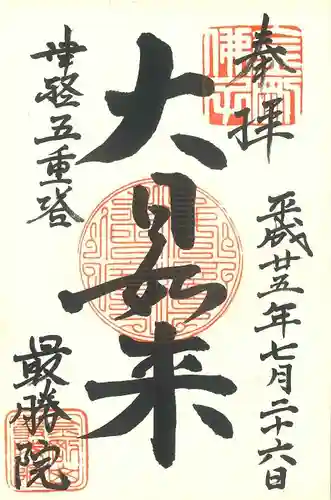 奉拝
平成廿五年七月二十六日
大日如来
津軽五重塔
最勝院